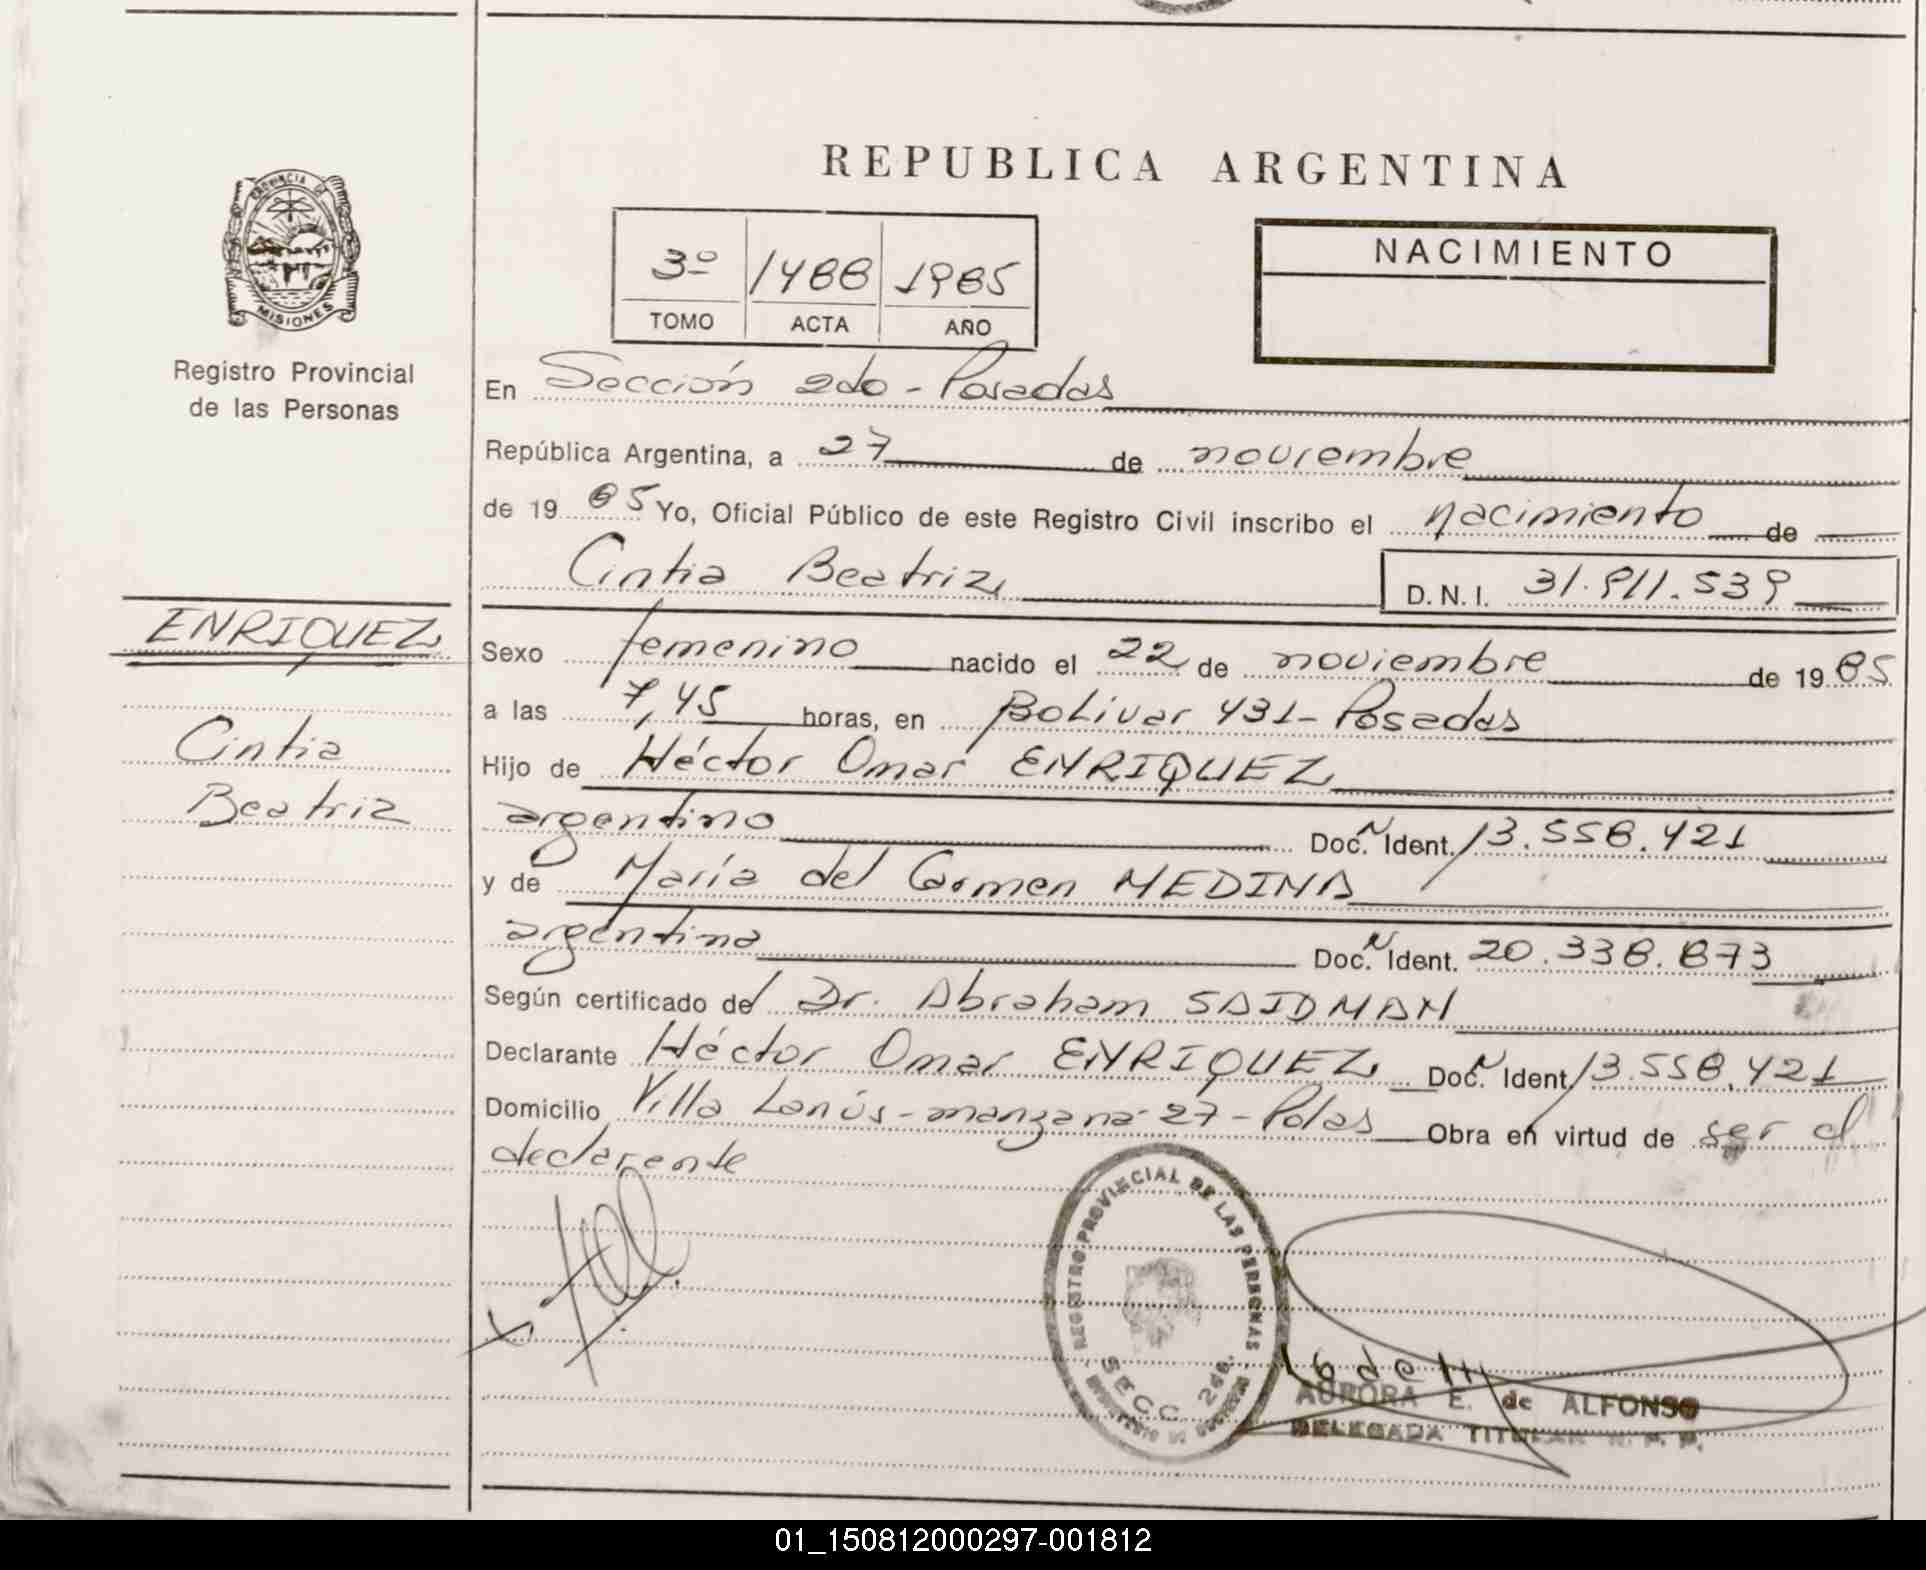 REPUBLICA ARGENTINA
PROVINCIA DE
MISIONES
Registro Provincial
de las Personas
3º 1488 1985
TOMO ACTA AÑO
NACIMIENTO
En Sección 2do - Posadas
República Argentina, a 27 de noviembre
de 19 85 Yo, Oficial Público de este Registro Civil inscribo el nacimiento de
Cintia Beatriz D.N.I. 31.911.539
ENRIQUEZ
Cintia
Beatriz
Sexo femenino nacido el 22 de noviembre de 19 85
a las 7,45 horas, en Bolivar 431 - Posadas
Hijo de Héctor Omar ENRIQUEZ
argentino Doc. N Ident. 13.558.421
y de María del Carmen MEDINA
argentina Doc. N Ident. 20.338.873
Según certificado del Dr. Abraham SAIDMAN
Declarante Héctor Omar ENRIQUEZ Doc. N Ident. 13.558.421
Domicilio Villa Lanús - manzana 27 - Pdas Obra en virtud de ser el
declarente
REGISTRO PROVINCIAL DE LAS PERSONAS
SECC. 2da.
AURORA E. de ALFONSO
DELEGADA TITULAR R. P. P.
01_150812000297-001812